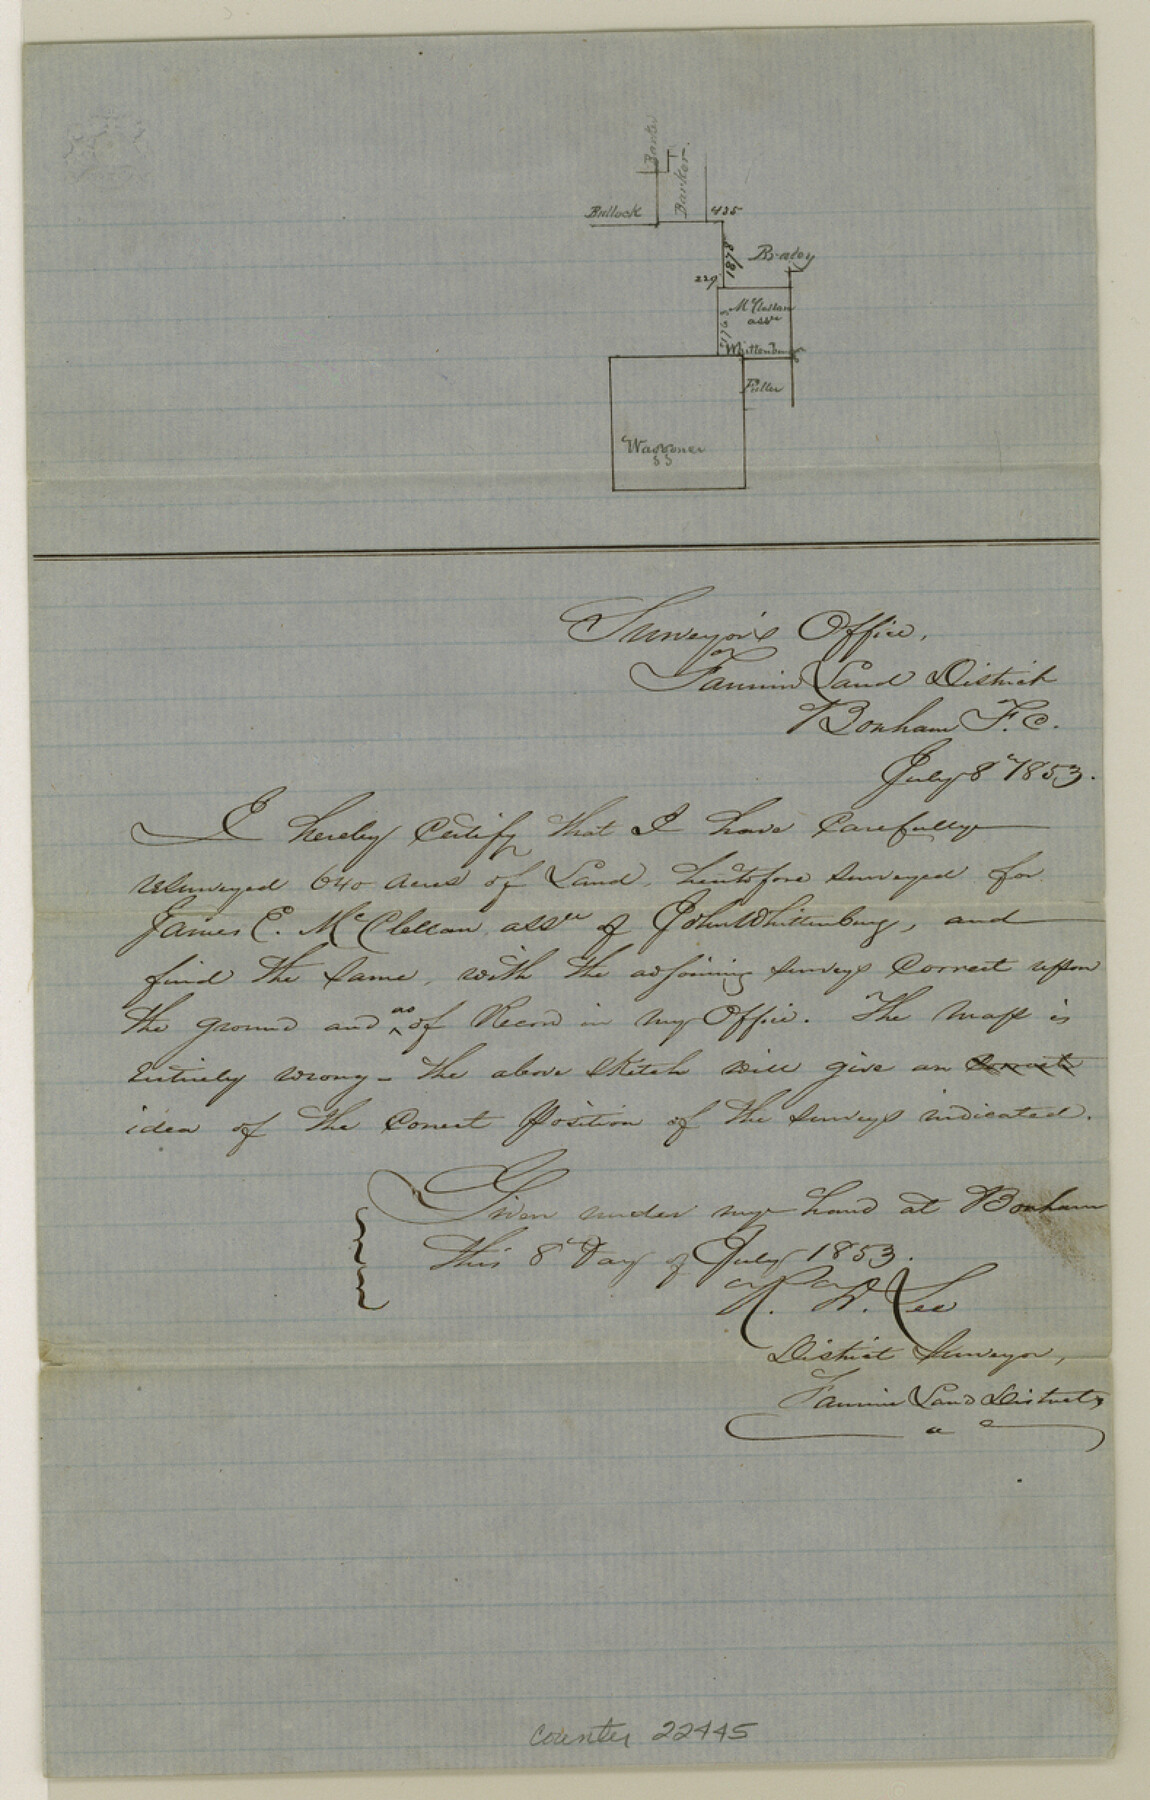 Baxter
Barker.
Bullock
435
1878
Braley
229
McClellan
assee
1163
Whittenburg
Fuller
Waggoner
Surveyor's Office,
Fannin Land District
Bonham F. C.
July 8" 1853.
I hereby Certify that I have Carefully
resurveyed 640 acres of Land, heretofore surveyed for
James E. McClellan assee of John Whittenburg, and
find the same, with the adjoining surveys Correct upon
the ground and as of Record in my Office. The map is
entirely wrong - the above sketch will give an correct
idea of the Correct Position of the surveys indicated.
Given under my hand at Bonham
This 8" Day of July 1853.
R. W. Lee
District Surveyor,
Fannin Land District
counter 22445